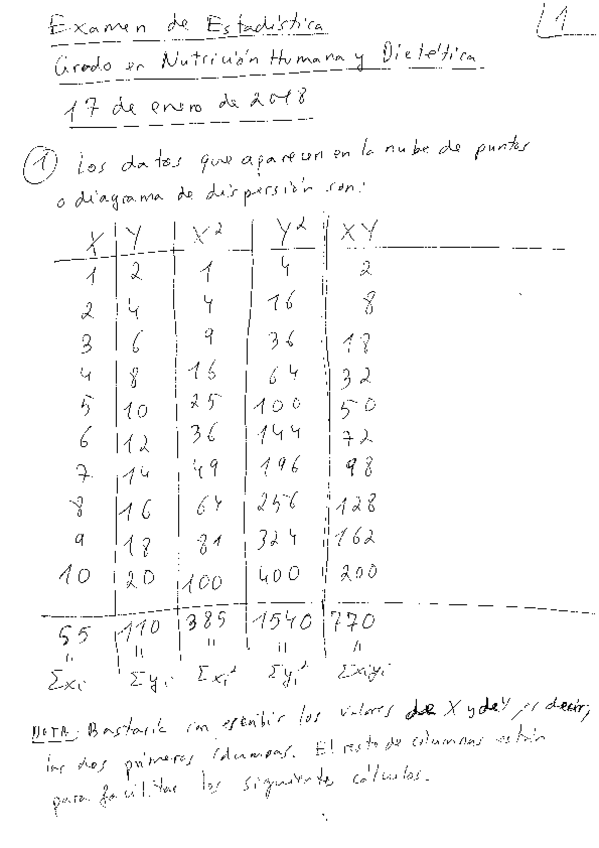 Examen de Estadística
1
Grado en Nutrición Humana y Dietética
17 de enero de 2018
1 Los datos que aparecen en la nube de puntos
o diagrama de dispersión son:
X Y X² Y² XY
1 2 1 4 2
2 4 4 16 8
3 6 9 36 18
4 8 16 64 32
5 10 25 100 50
6 12 36 144 72
7 14 49 196 98
8 16 64 256 128
9 18 81 324 162
10 20 100 400 200
55 110 385 1540 770
= = = = =
Σxi Σyi Σxi² Σyi² Σxiyi
NOTA: Bastaría con escribir los valores de X y de Y, es decir,
las dos primeras columnas. El resto de columnas están
para facilitar los siguientes cálculos.